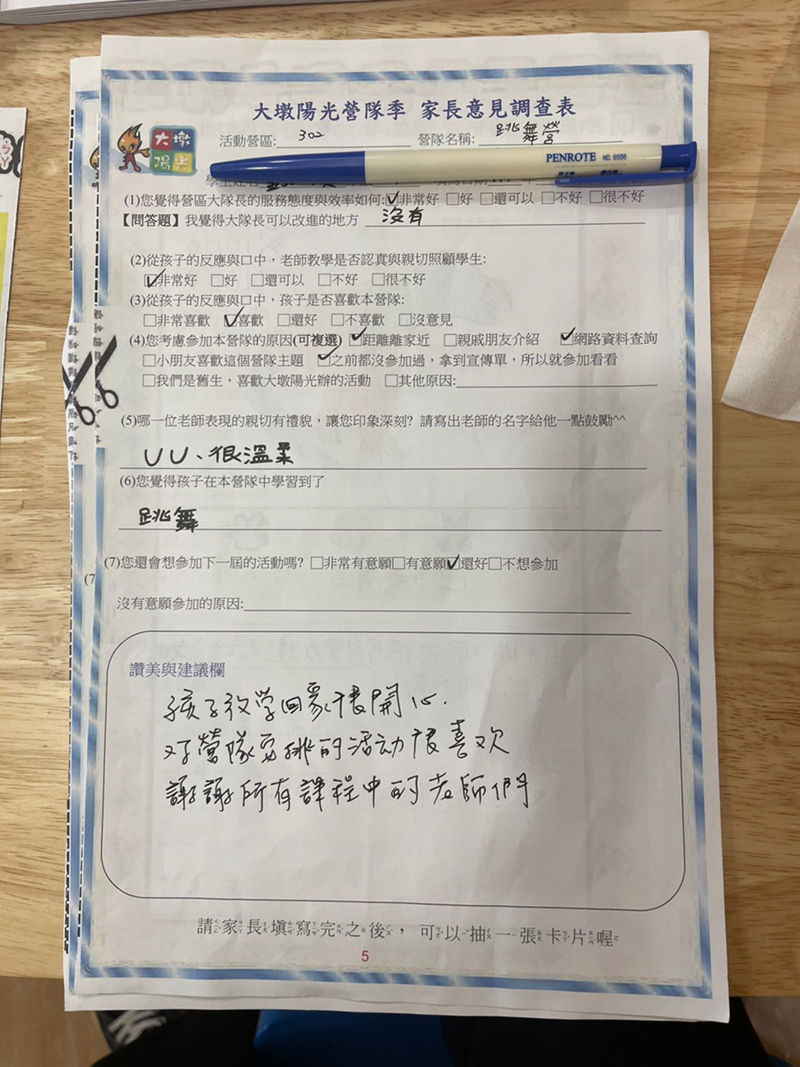 大墩陽光營隊季 家長意見調查表
大墩陽光
活動營區: 302 營隊名稱: 跳舞營
PENROTE NO. 6506
(1)您覺得營區大隊長的服務態度與效率如何:☑非常好 □好 □還可以 □不好 □很不好
【問答題】我覺得大隊長可以改進的地方 沒有
(2)從孩子的反應與口中，老師教學是否認真與親切照顧學生:
☑非常好 □好 □還可以 □不好 □很不好
(3)從孩子的反應與口中，孩子是否喜歡本營隊:
□非常喜歡 ☑喜歡 □還好 □不喜歡 □沒意見
(4)您考慮參加本營隊的原因(可複選) ☑距離離家近 □親戚朋友介紹 ☑網路資料查詢
□小朋友喜歡這個營隊主題 ☑之前都沒參加過，拿到宣傳單，所以就參加看看
□我們是舊生，喜歡大墩陽光辦的活動 □其他原因:
(5)哪一位老師表現的親切有禮貌，讓您印象深刻? 請寫出老師的名字給他一點鼓勵^^
UU、很溫柔
(6)您覺得孩子在本營隊中學習到了
跳舞
(7)您還會想參加下一屆的活動嗎? □非常有意願□有意願☑還好□不想參加
(7
沒有意願參加的原因:
讚美與建議欄
孩子放學回家很開心.
对營隊安排的活动很喜欢
謝謝所有課程中的老師們
請家長填寫完之後，可以抽一張卡片喔
5